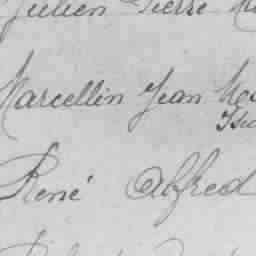 Julien Pierre
Marcellin Jean
René Alfred